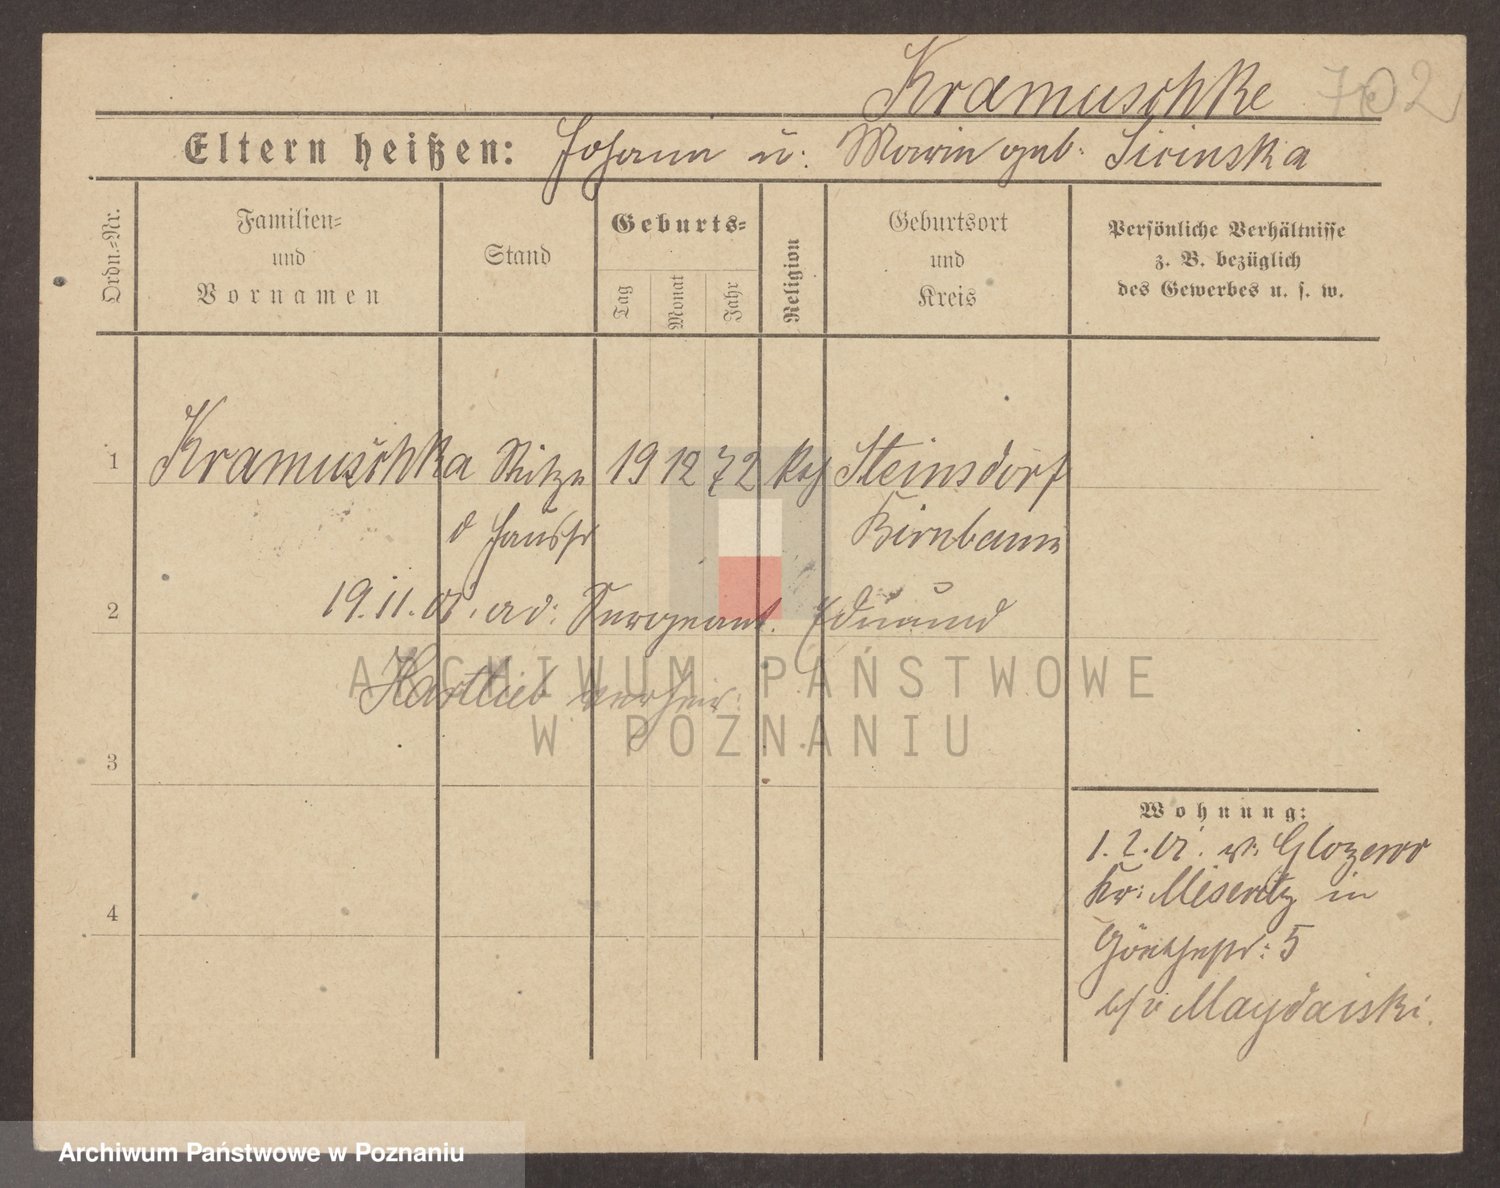 Kramuschke 702
Eltern heißen: Johann u. Marie geb. Sirinska
Ordn.=Nr.
Familien=
und
Vornamen
Stand
Geburts=
Tag
Monat
Jahr
Religion
Geburtsort
und
Kreis
Persönliche Verhältnisse
z. B. bezüglich
des Gewerbes u. s. w.
1 Kramuschka Stütze 19 12 72 kath Steinsdorf
d Hausfr Birnbaum
2 19.11. ad: Sergeant. Eduard
Hartlieb verheir.
ARCHIWUM PAŃSTWOWE
W POZNANIU
3
4
Wohnung:
1.2.01. v. Glozewo
Kr: Meseritz in
Göethestr: 5
b/ Maydaiski.
Archiwum Państwowe w Poznaniu